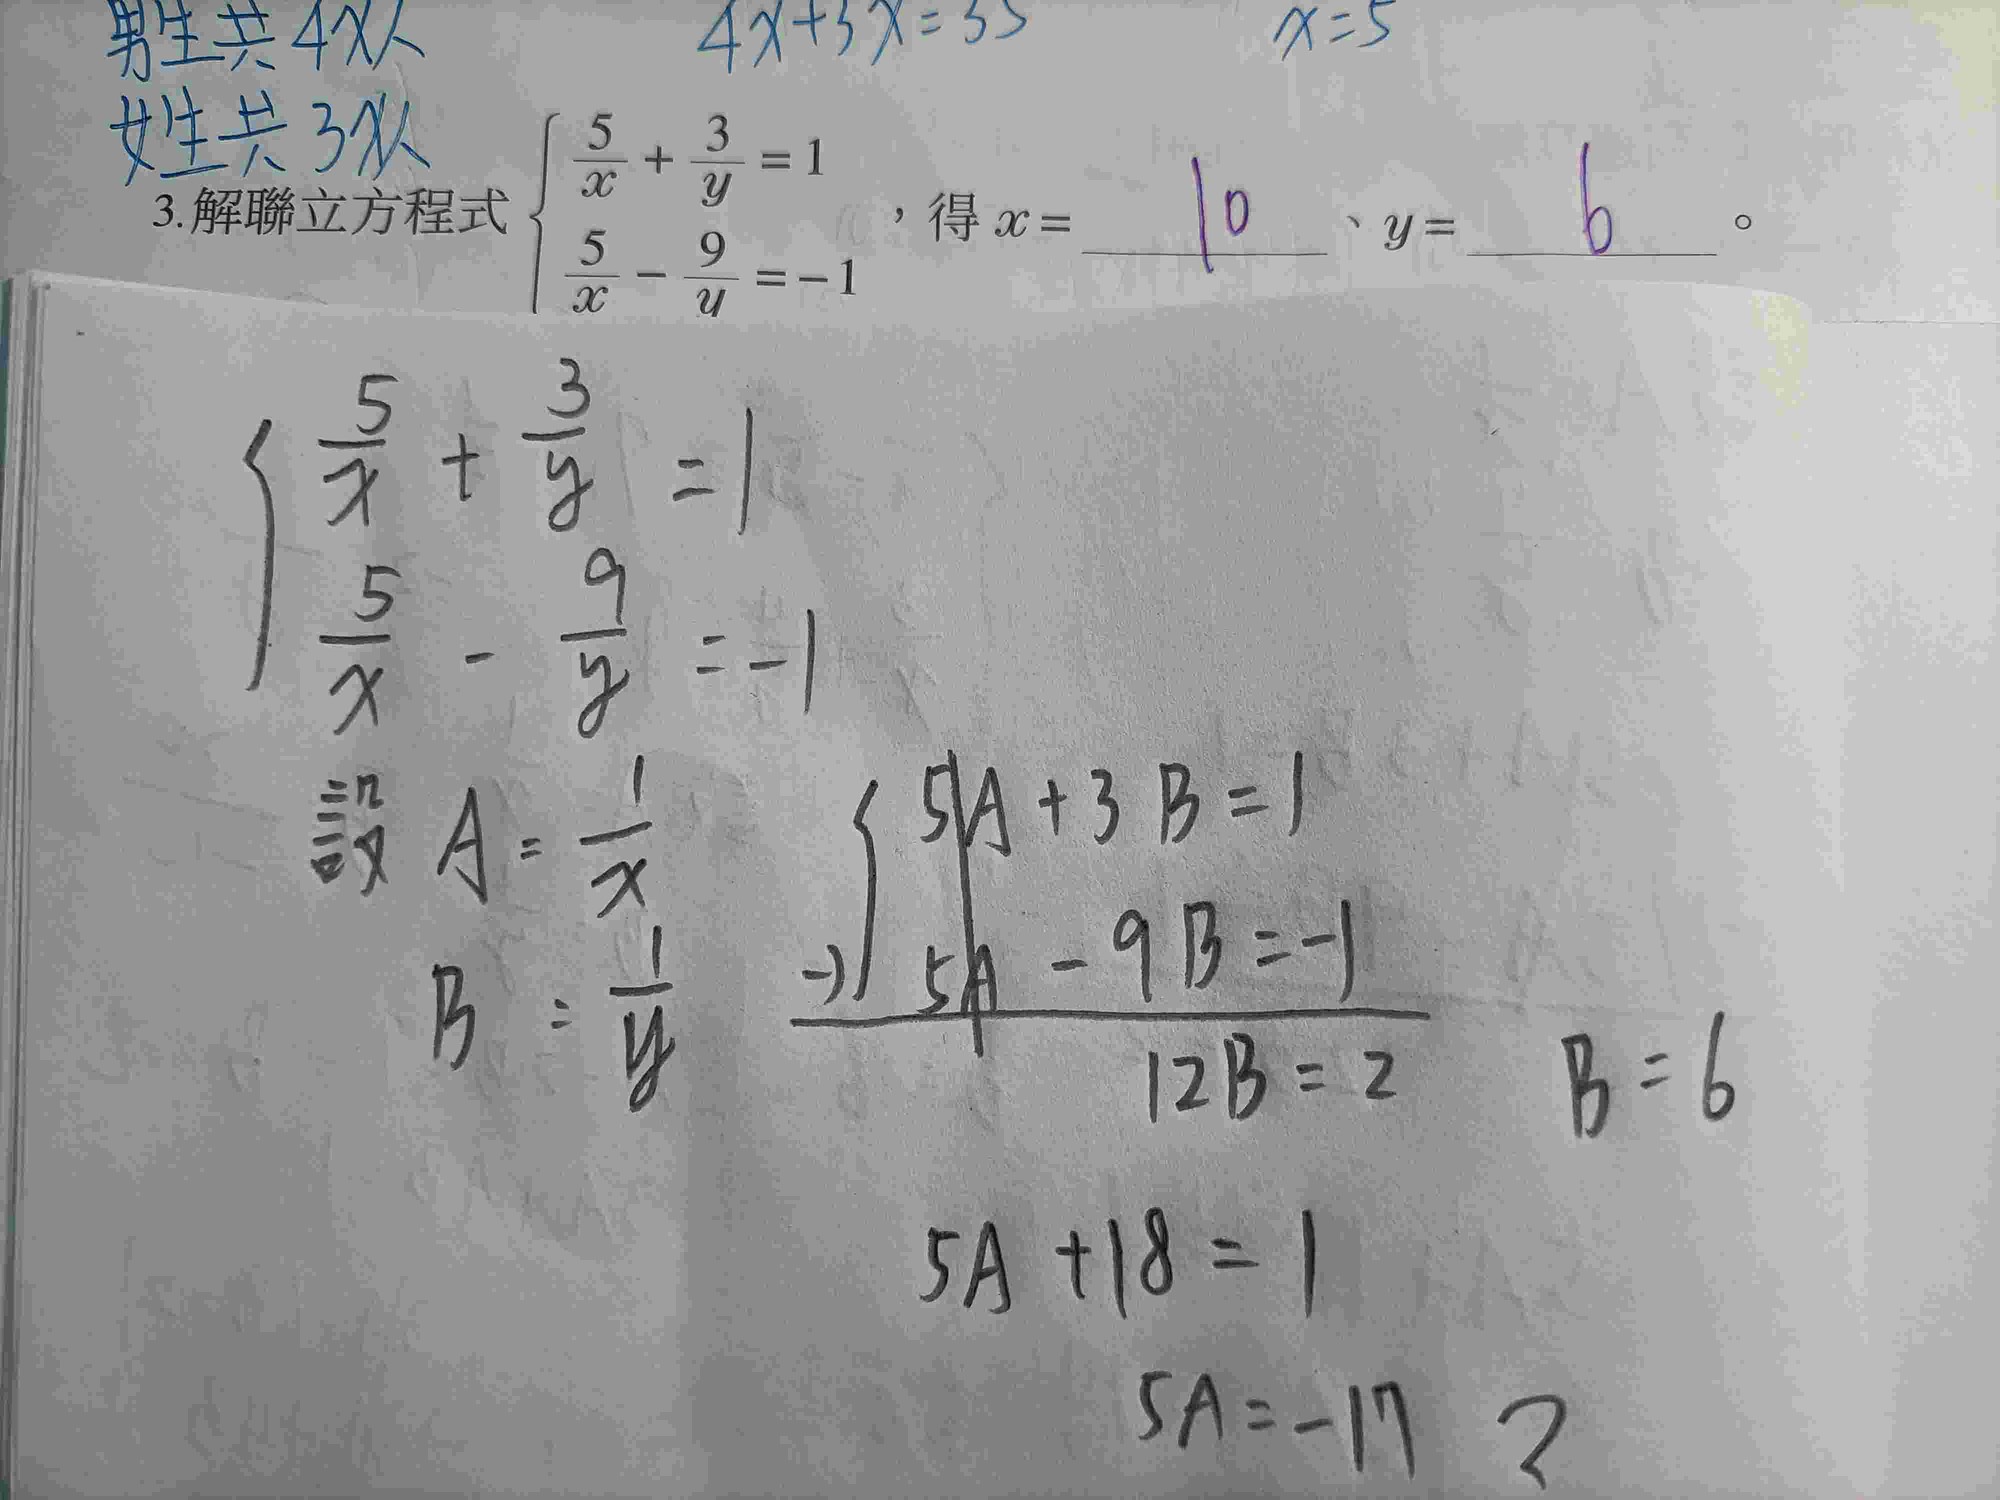 男生共4x人 4x+3x=35 x=5
女生共3x人
3.解聯立方程式 { 5/x + 3/y = 1 , 5/x - 9/y = -1 ,得 x = 10 、y = 6 。
5/x + 3/y = 1
5/x - 9/y = -1
設 A = 1/x
B = 1/y
5A + 3B = 1
-) 5A - 9B = -1
12B = 2 B = 6
5A + 18 = 1
5A = -17 ?